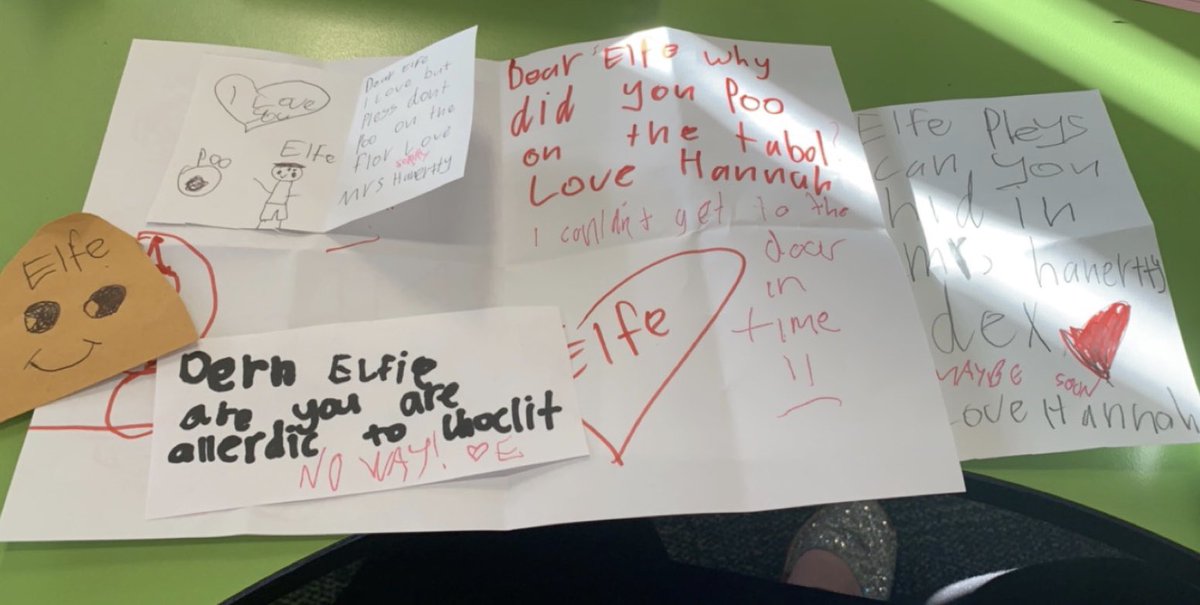 I Love
you
Poo
Elfe
Dear Elfe
I Love but
Pleys dont
Poo on the
flor Love
sorry
Mrs Hanertty
Dear Elfe why
did you Poo
on the tabol?
Love Hannah
I couldn't get to the
door
in
time
Elfe
Elfe Pleys
can you
hid in
mrs hanertty
dex.
MAYBE soon
Love Hannah
Elfe
Dern Elfie
are you are
allerdic to choclit
NO WAY! ♡ E